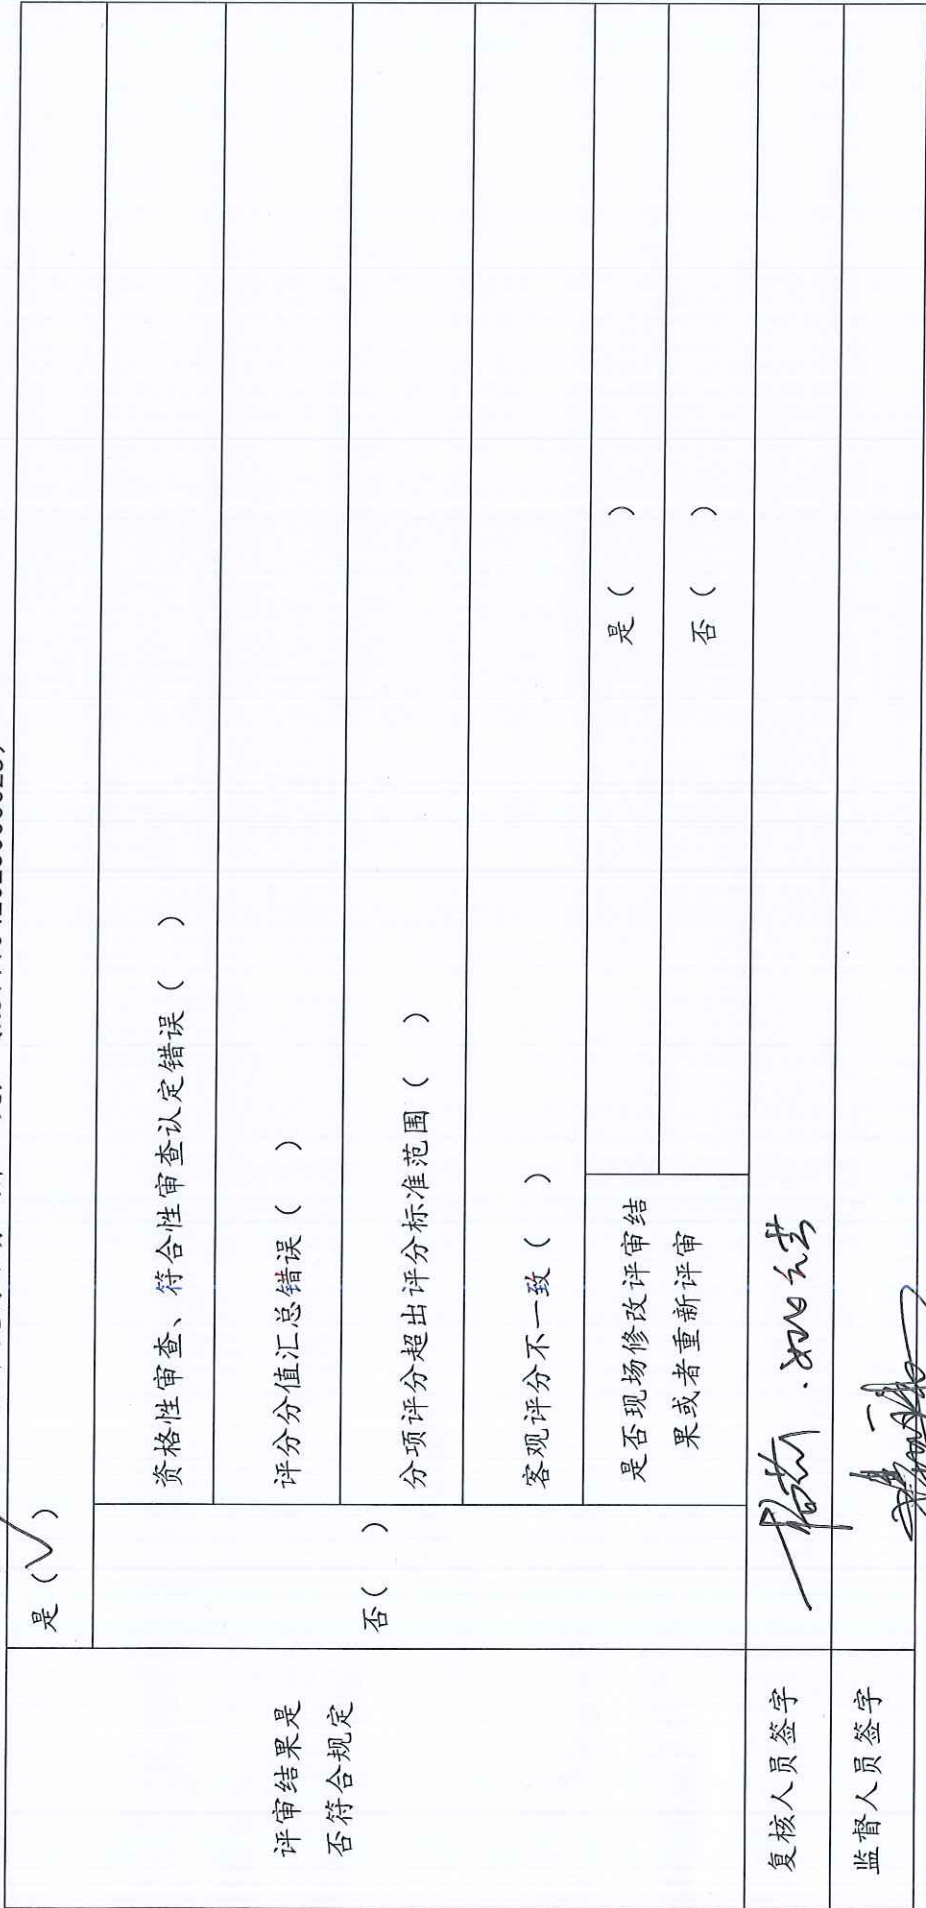 是（√）
评审结果是
否符合规定
否（　）
资格性审查、符合性审查认定错误（　）
评分分值汇总错误（　）
分项评分超出评分标准范围（　）
客观评分不一致（　）
是否现场修改评审结
果或者重新评审
是（　）
否（　）
复核人员签字
监督人员签字